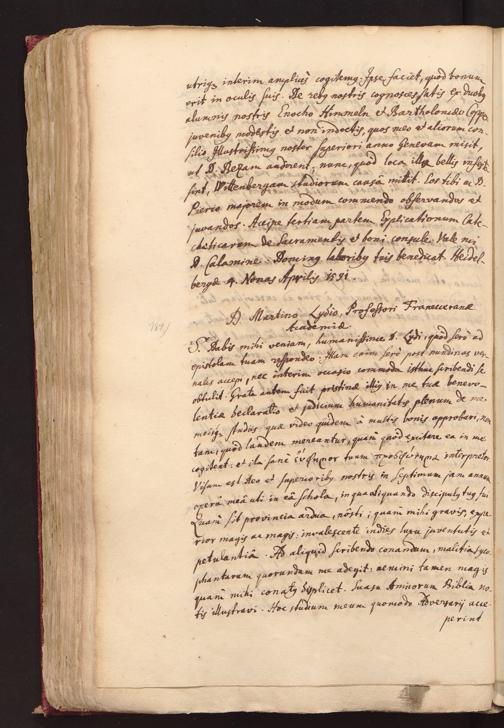 utriq; interim amplius cogitemus. Ipse faciet, quod bonum
erit in oculis suis. De rebus nostris cognosces satis ex duobus
alumnis nostris Enocho Himmeln et Bartholomæo
juvenibus modestis et non indoctis, quos meo et aliorum con-
silio Illustrissimus noster superiori anno Genevam misit,
ut D. Bezam audirent, nunc, quod loca illa bellis infesta
sint, Wittenbergam studiorum causâ mittit. Eos tibi et D.
Pierio majorem in modum commendo observandos et
juvandos. Accipe tertiam partem Explicationum Cate-
cheticarum de Sacramentis et boni consule. Vale mi
D. Calamine. Dominus laboribus tuis benedicat. Heidel-
bergæ 4. Nonas Aprilis 1591.
D. Martino Lydio, Professori Franeceranæ
Academiæ
S. Dabis mihi veniam, humanissime D. Lydi, quod serò ad
epistolam tuam respondeo: Nam eam serò post nundinas ver-
nales accepi, nec interim occasio commoda isthuc scribendi se
obtulit. Grata autem fuit pristinæ illius in me tuæ benevo-
lentiæ declaratio et judicium humanitatis plenum de meis
studiis quæ video quidem à multis bonis approbari, non
tam, quod laudem mereantur, quàm quod excitare ea in me
cogitent: et ita sanè tuum interpretor.
Visum est Deo et superioribus nostris in septimum jam annum
operâ meâ uti in eâ schola, in qua aliquando discipulus tuus fui.
Quàm sit provincia ardua, nôsti; quàm mihi gravis, expe-
rior magis ac magis, invalescente indies luxu juventutis et
petulantiâ. Ad aliquid scribendo conandum, malitia syco-
phantarum quorundam me adegit: nemini tamen magis
quàm mihi conatus displicet. Suasu Amicorum Biblia no-
tis illustravi. Hoc studium meum quomodo Adversarij acce-
perint